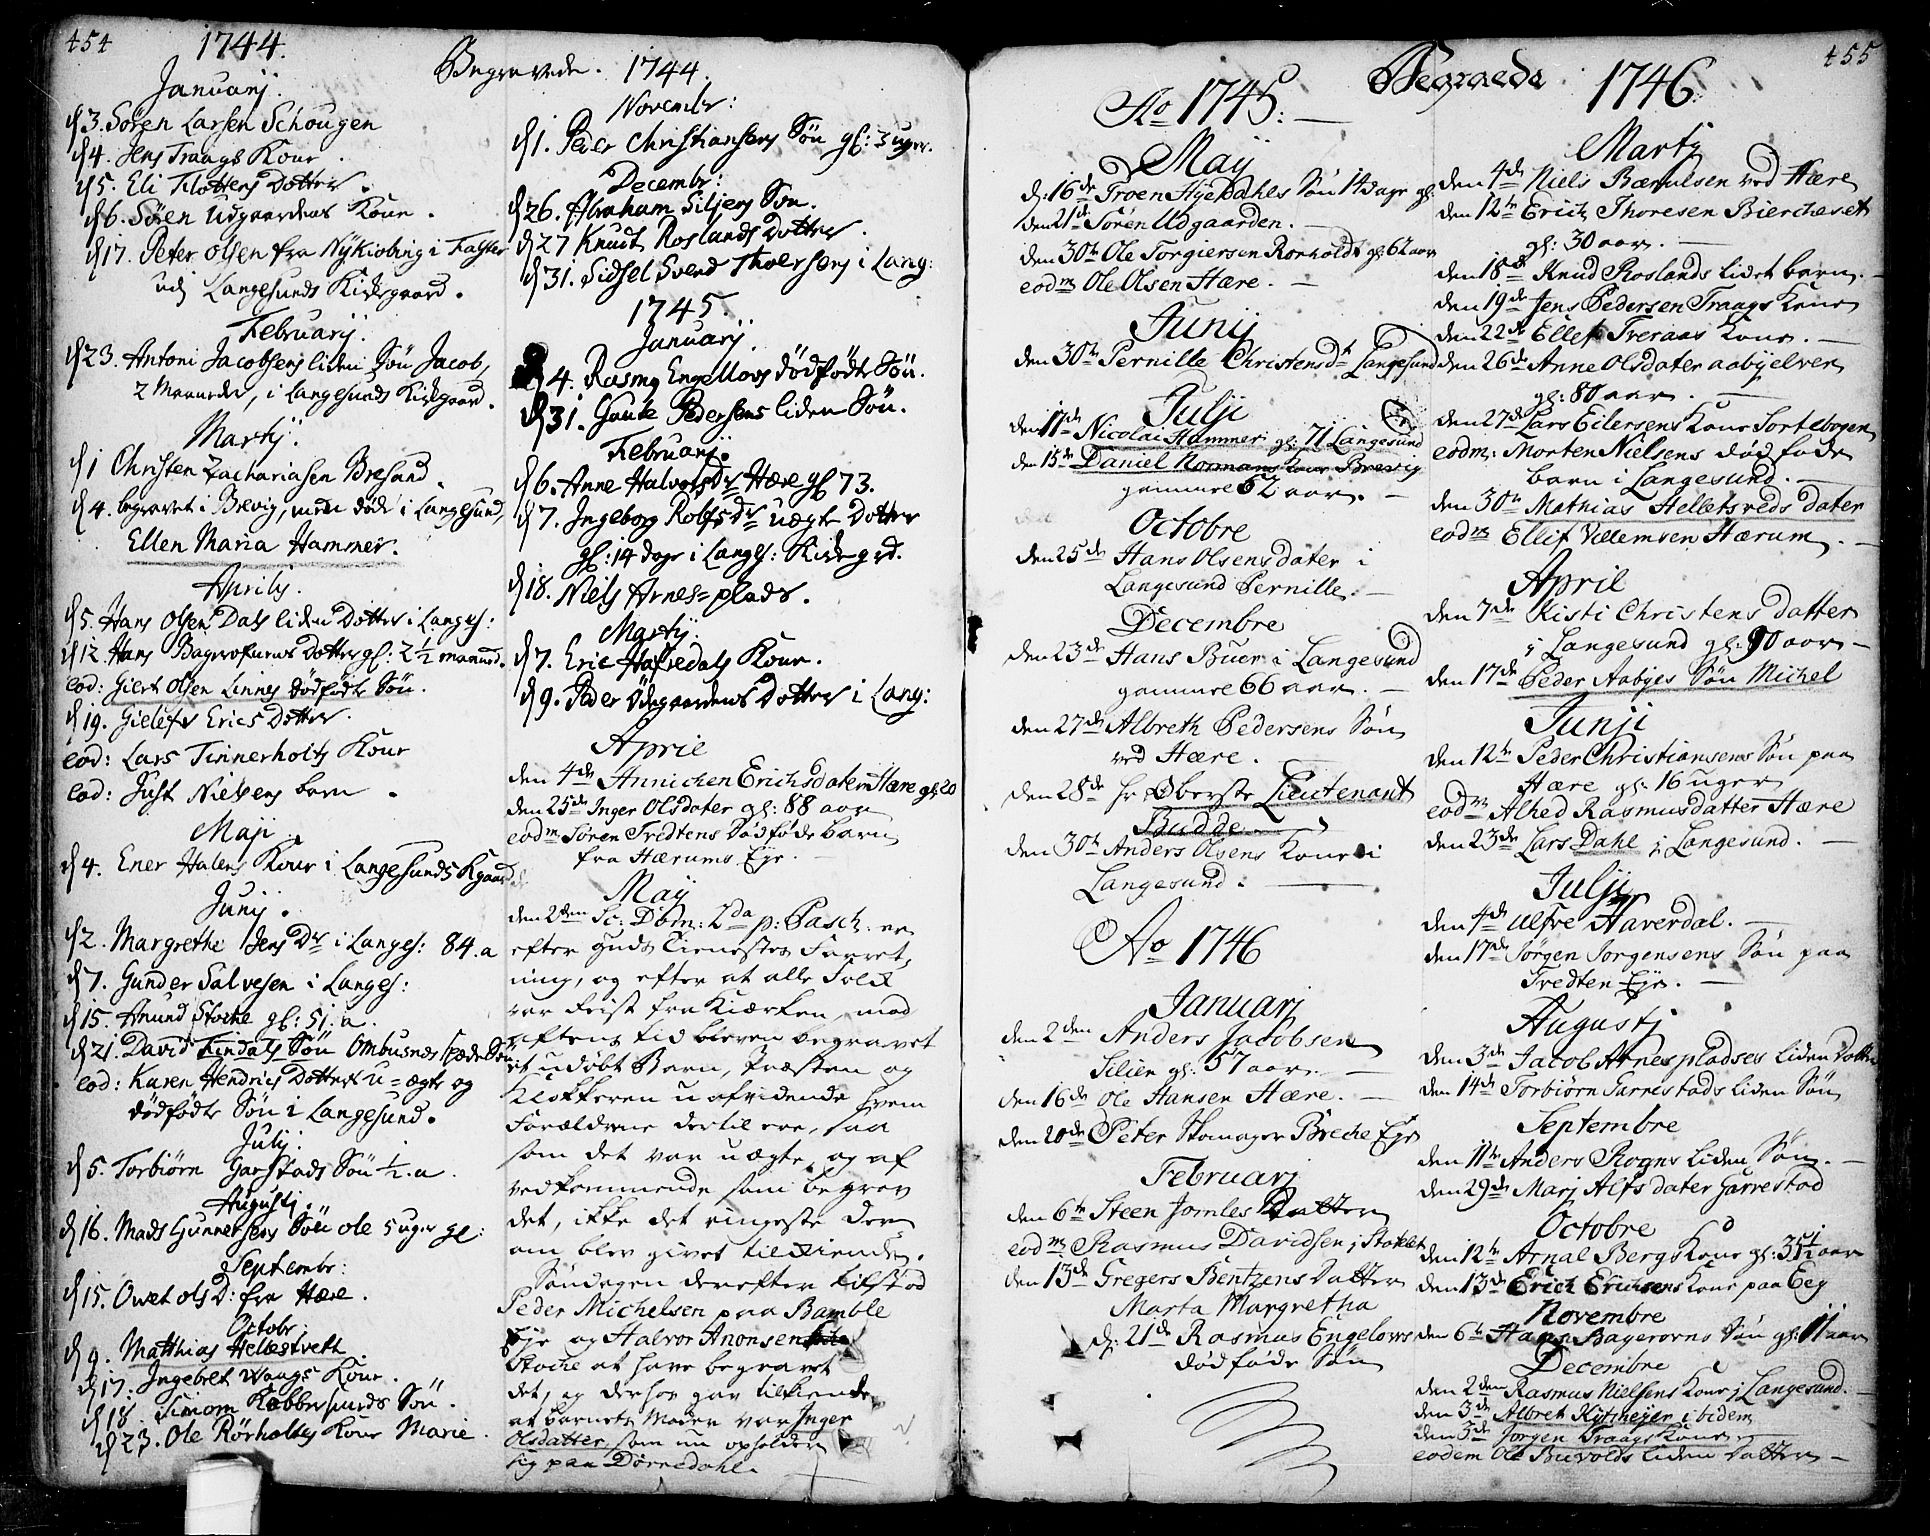 454
1744.
Begravede. 1744.
Januarij.
d 3. Sören Larsen Schougen
d 4. Jens Traags Kone.
d 5. Eli Flottens Dotter.
d 6. Sören Udgaardens Kone.
d 17. Peter Olsen fra Nÿkiobing i Falster
udj Langesunds Kirkegaard.
Februarij.
d 23. Antoni Jacobsens liden Sön Jacob,
2 Maaneder, i Langesunds Kirkegaard.
Martij.
d 1 Christen Zachariasen Bresund.
d 4. begravet i Brevig, men döde i Langesund,
Ellen Maria Hammer.
Aprilis.
d 5. Hans Olsen Dals liden Dotter i Langes:
d 12 Hans Bagerofnens Dotter gl: 2 1/2 maaned.
eod: Giert Olsen Linnes dödfödte Sön.
d 19. Gielefs Erics Dotter.
eod: Lars Tinnerholts Kone
eod: Just Nielsens barn.
Maji.
d 4. Ener Halens Kone i Langesunds Kgaard
Junij.
d 2. Margrethe Jens Dr i Langes: 84. a
d 7. Gunder Salvesen i Langes:
d 15. Anund Stocke gl: 51. a.
d 21. David Findals Sön Ombusnes spæde Sön
eod: Karen Hendrics Dotters u-ægte og
dödfödte Sön i Langesund.
Julij.
d 5. Torbiörn Garstads Sön 1/2. a.
Augustj.
d 16. Mads Gunnersens Sön ole 5 uger gl:
Septembr:
d 15. Owet ols D: fra Hære.
Octobr.
d 9. Matthias Hellestveth.
d 17. Ingebret Waags Kone.
d 18. Simom Kobberdreds Sön.
d 23. Ole Rörholtes Kone Marie.
Novembr:
d 1. Peder Christiansens Sön gl: 3 uger.
Decembr:
d 26. Abraham Siljens Sön.
d 27 Knudt Roslands Dotter.
d 31. Sidsel Svend Thoersens i Lang:
1745.
Januarij.
d 4. Rasmg Engellovs dödfödte Sön.
d 31. Gaute Pedersens liden Sön.
Februarij.
d 6. Anne Halvors Dr Hære gl 73.
d 7. Ingeborg Rolfs Dr uægte Dotter
gl: 14 dage i Langes: Kirkegrd.
d 18. Niels Arnes-plads.
Martij.
d 7. Eric Hafredals Kone.
d 9. Peder Ödegaardens Dotter i Lang:
Aprie
den 4de Annichen Erichsdater Hære gl 20
den 25de Inger Olsdater gl: 88 aar
eodm Sören Tredtens dödföde barn
fra Hærums Eje.
May
den 2den Sc: Dom: 2da p: Pasch. er
efter Guds Tienestes Forret,
ning, og efter at alle Folk
var reist fra Kiærken, mod
aftens tid bleven begravet
et udöbt Barn, Præsten og
Klokkeren uafvidende hvem
Forældrene dertil ere, saa
som det var uægte, og af
vedkommende som begrov
det, ikke det ringeste der
om blev givet tilkiende.
Söndagen derefter tilstod
Peder Michelsen paa Bamble
Eje og Halvor Anonsen
Stocke at have begravet
det, og derhos gav tilkiende
at barnets Moder var Inger
Olsdatter som nu opholder
sig paa Dörredahl.
455
Begraede 1746
Ao 1745:
Maij
d: 16de Troen Hyedahls Sön 14 dage gl:
den 21de Sören Udgaarden.
den 30te Ole Torgiersen Rorholdt gl: 62 aar
eodm Ole Olsen Hære.
Junij
den 30te Pernille Christensdt Langesund
Julji
den 11te Nicolai Hammer gl: 71 Langesund
den 15de Daniel Normans Kone Brevig
gammel 62 aar.
Octobre
den 25de Hans Olsens dater i
Langesund Pernille.
Decembre
den 23de Hans Buer i Langesund
gammel 66 aar.
den 27de Albreth Pedersens Sön
ved Hære.
den 28de hr Oberste Lieutenant
Budde.
den 30te Anders Olsens Kone i
Langesund.
Ao 1746
Januarj
den 2den Anders Jacobsen
Silien gl: 57 aar.
den 16de Ole Hansen Hære.
den 20de Peter Skomager Breche Eje
Februarj
den 6te Steen Jomles Datter
eodm Rasmus Davidsen j Stoklet
den 13de Gregers Bentzens Datter
Marta Margretha
d: 21de Rasmus Engelows
dödföde Sön
Martj
den 4de Niels Bærulsen ved Hære
den 12te Erich Thoresen Bierckeset
gl: 30 aar.
den 18de Knud Roslands lidet barn.
den 19de Jens Pedersen Traags Kone
den 22de Ellef Treraas Kone.
den 26de Anne Olsdater aabyelven
gl: 80 aar.
den 27de Lars Eilersens Kone Sortebogen
eodm: Morten Nielsens dödföde
barn i Langesund.
den 30te Mathias Helletsveds dater
eodm Ellif Villemsen Hærum.
April
den 7de Kisti Christens datter
i Langesund gl: 90 aar
den 17de Peder Aabyes Sön Michel
Junji
den 12te Peder Christiansens Sön paa
Hære gl: 16 uger
eodm Alhed Rasmusdatter Hære
den 23de Lars Dahl i Langesund.
Julji
den 4de Ulfre Haverdal.
den 17de Jörgen Jorgensens Sön paa
Tredten Eje.
Augustj
den 3de Jacob Arnes pladses liden Datter
den 14de Torbiörn Jarrestads liden Sön
Septembre
den 11te Anders Rogns liden Sön.
den 29de Marj Alfsdater Garrestad
Octobre
den 12te Arnal Bergs Kone gl: 35 1/2 aar
den 13de Erich Erichsens Kone paa Eeg
Novembre
den 6te Hans Bagerorns Sön gl: 11 aar
Decembre
den 2den Rasmus Nielsens Kone j Langesund.
den 3de Albret Kitmejer ibidem
den 3de Jorgen Traags Kone
eodem Ole Buvolds liden Datter